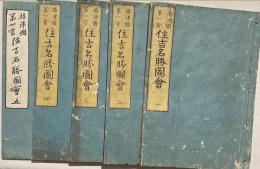 攝津國
第一宮
住吉名勝圖會
攝津國
第一宮
住吉名勝圖會 二
攝津國
第一宮
住吉名勝圖會 三
攝津國
第一宮
住吉名勝圖會 四
攝津國
第一宮 住吉名勝圖會 五